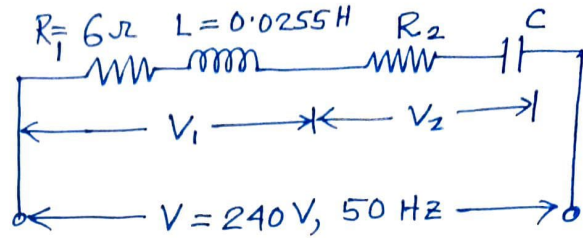 R₁ = 6Ω L = 0.0255H R₂ C
V₁ V₂
V = 240V, 50 HZ